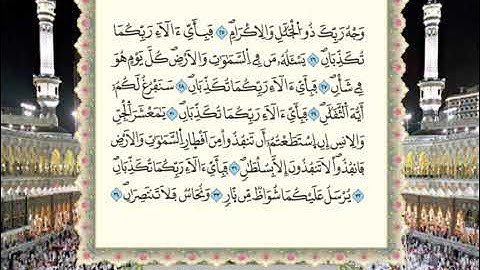 وَجْهُ رَبِّكَ ذُو الْجَلَٰلِ وَالْإِكْرَامِ ٢٥ فَبِأَيِّ ءَالَآءِ رَبِّكُمَا
تُكَذِّبَانِ ٢٦ يَسْـَٔلُهُۥ مَن فِي السَّمَٰوَٰتِ وَالْأَرْضِ كُلَّ يَوْمٍ هُوَ
فِي شَأْنٍ ٢٧ فَبِأَيِّ ءَالَآءِ رَبِّكُمَا تُكَذِّبَانِ ٢٨ سَنَفْرُغُ لَكُمُۥ
أَيُّهَ الثَّقَلَٰنِ ٢٩ فَبِأَيِّ ءَالَآءِ رَبِّكُمَا تُكَذِّبَانِ ٣٠ يَٰمَعْشَرَ الْجِنِّ
وَالْإِنسِ إِنِ اسْتَطَعْتُمُۥ أَن تَنفُذُوا مِنْ أَقْطَارِ السَّمَٰوَٰتِ وَالْأَرْضِ
فَانفُذُوا لَا تَنفُذُونَ إِلَّا بِسُلْطَٰنٍ ٣١ فَبِأَيِّ ءَالَآءِ رَبِّكُمَا تُكَذِّبَانِ
٣٢ يُرْسَلُ عَلَيْكُمَا شُوَاظٌ مِّن نَّارٍ ٣٣ وَنُحَاسٌ فَلَا تَنتَصِرَانِ ٣٤